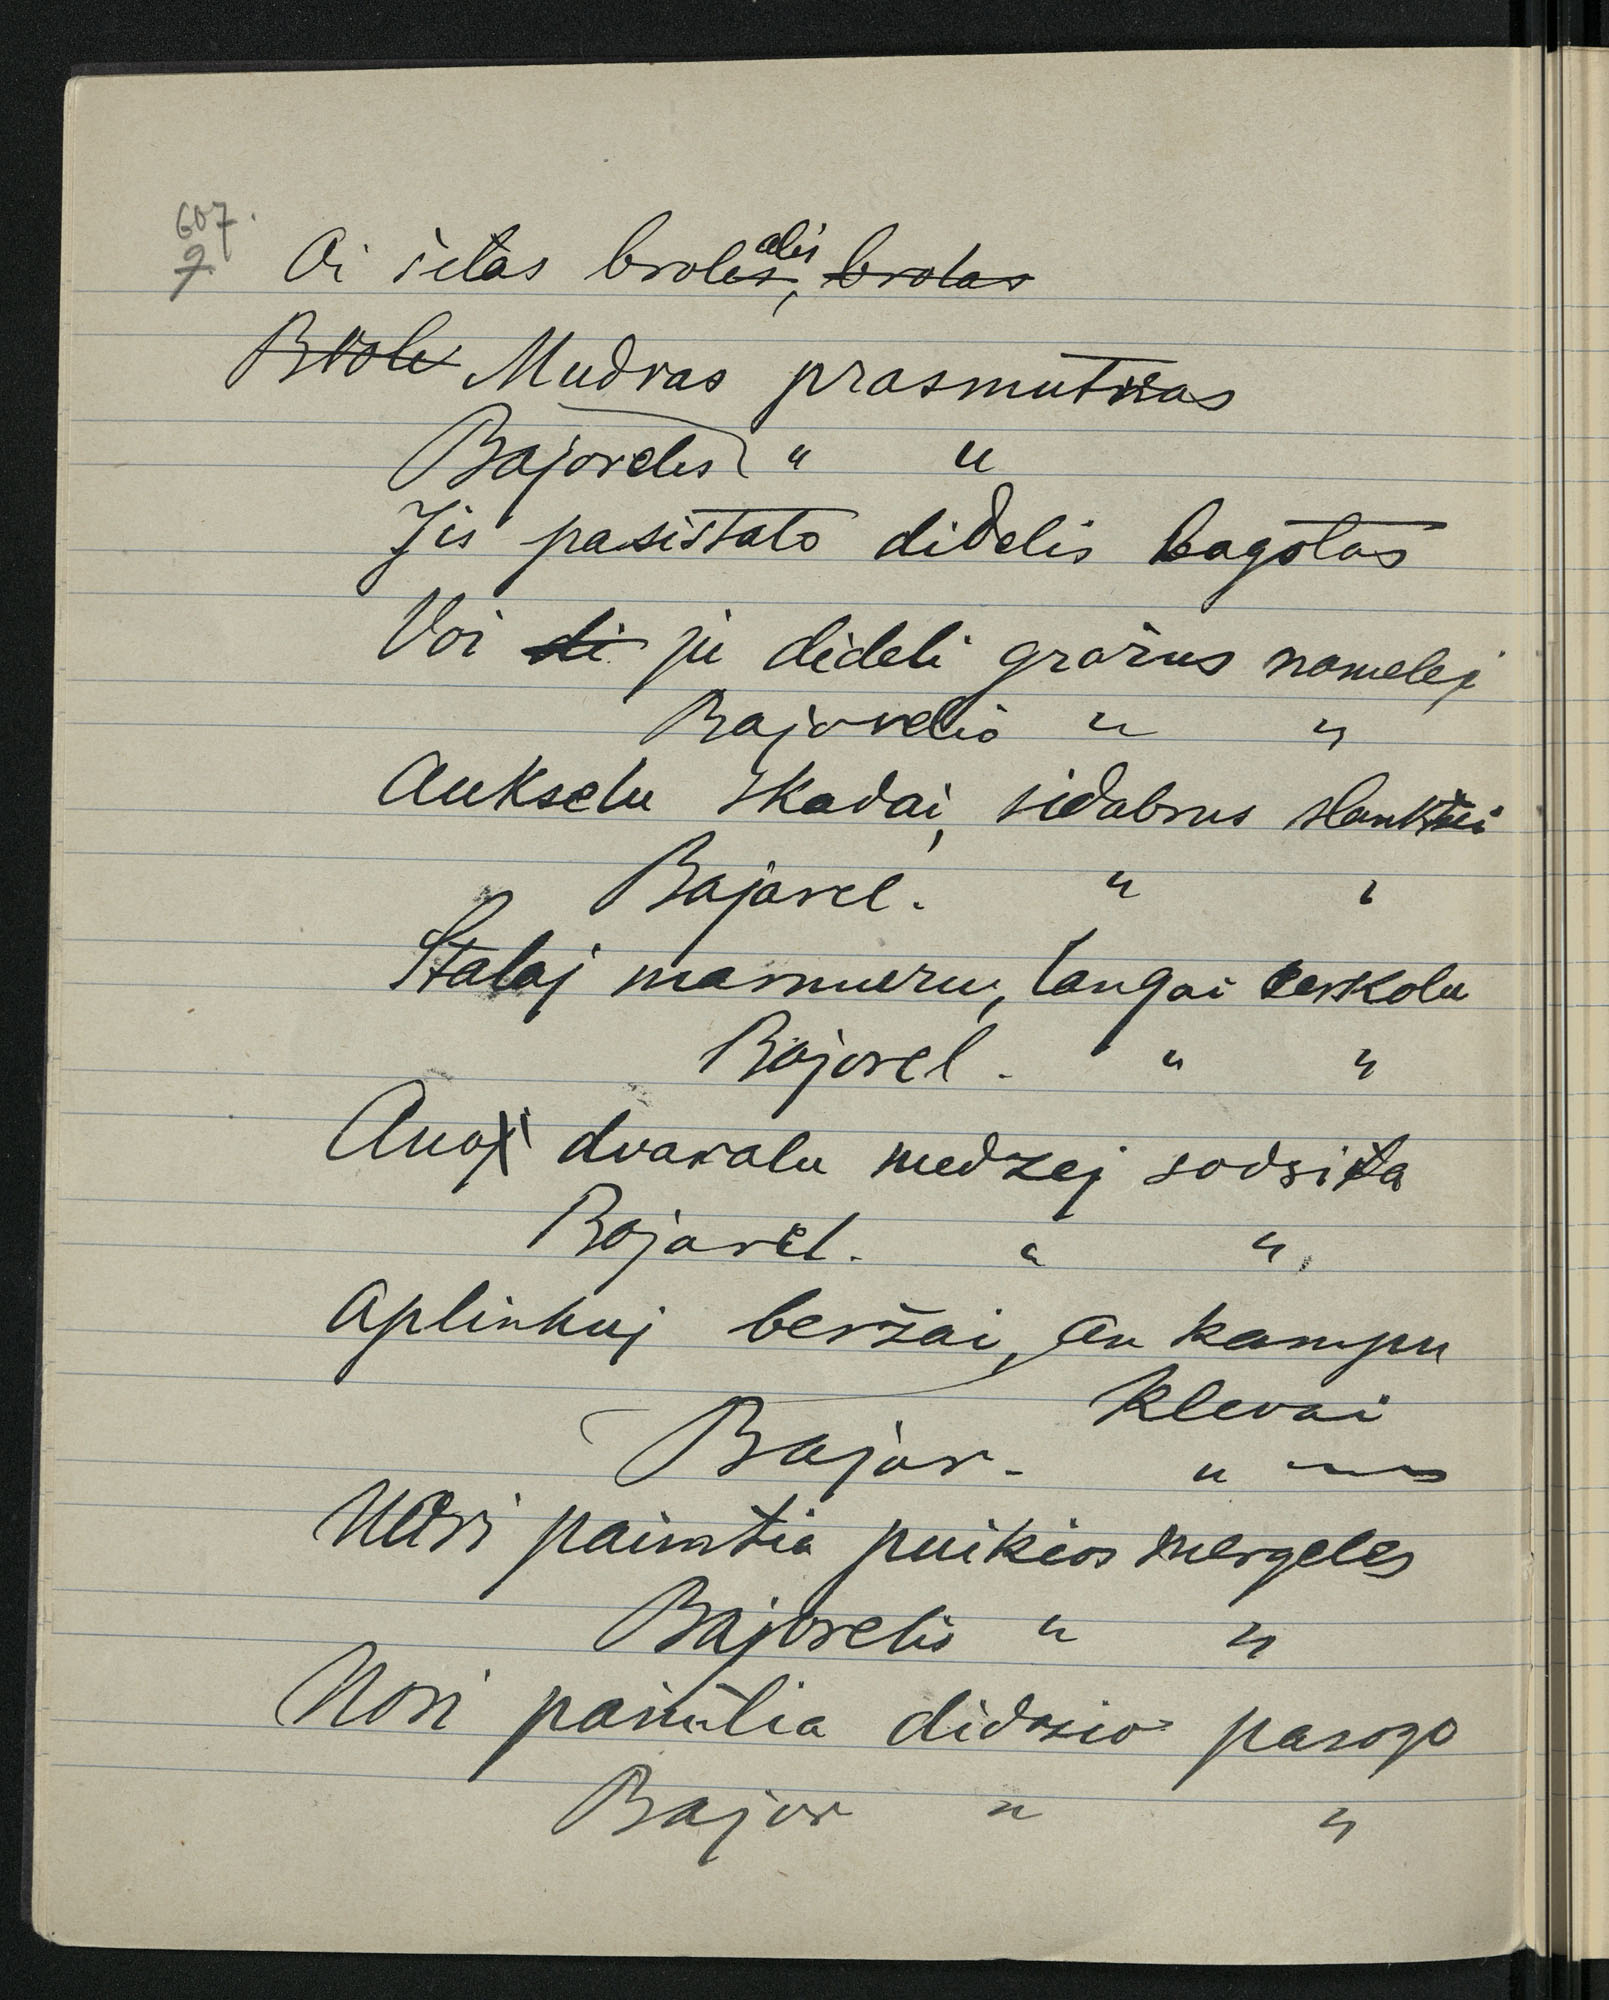 607.
7
Oi šitas brolalis, brolas
Brole Mudras prasmutnas
Bajorelis " "
Jis pasistato didelis bagotas
Voi di ju dideli gražus namelej
Bajorelio " "
Aukselu skadai, sidabrus slankstei
Bajarel. " "
Stalaj marmuru, langai cerkolu
Bajorel. " "
Anoj dvaralu medzej sodsita
Bajarel. " "
Aplinkuj beržai, an kampu
Klevai
Bajor. " "
Nori paimtia puikios mergeles
Bajorelis " "
Nori paimtia didzio pasogo
Bajor " "